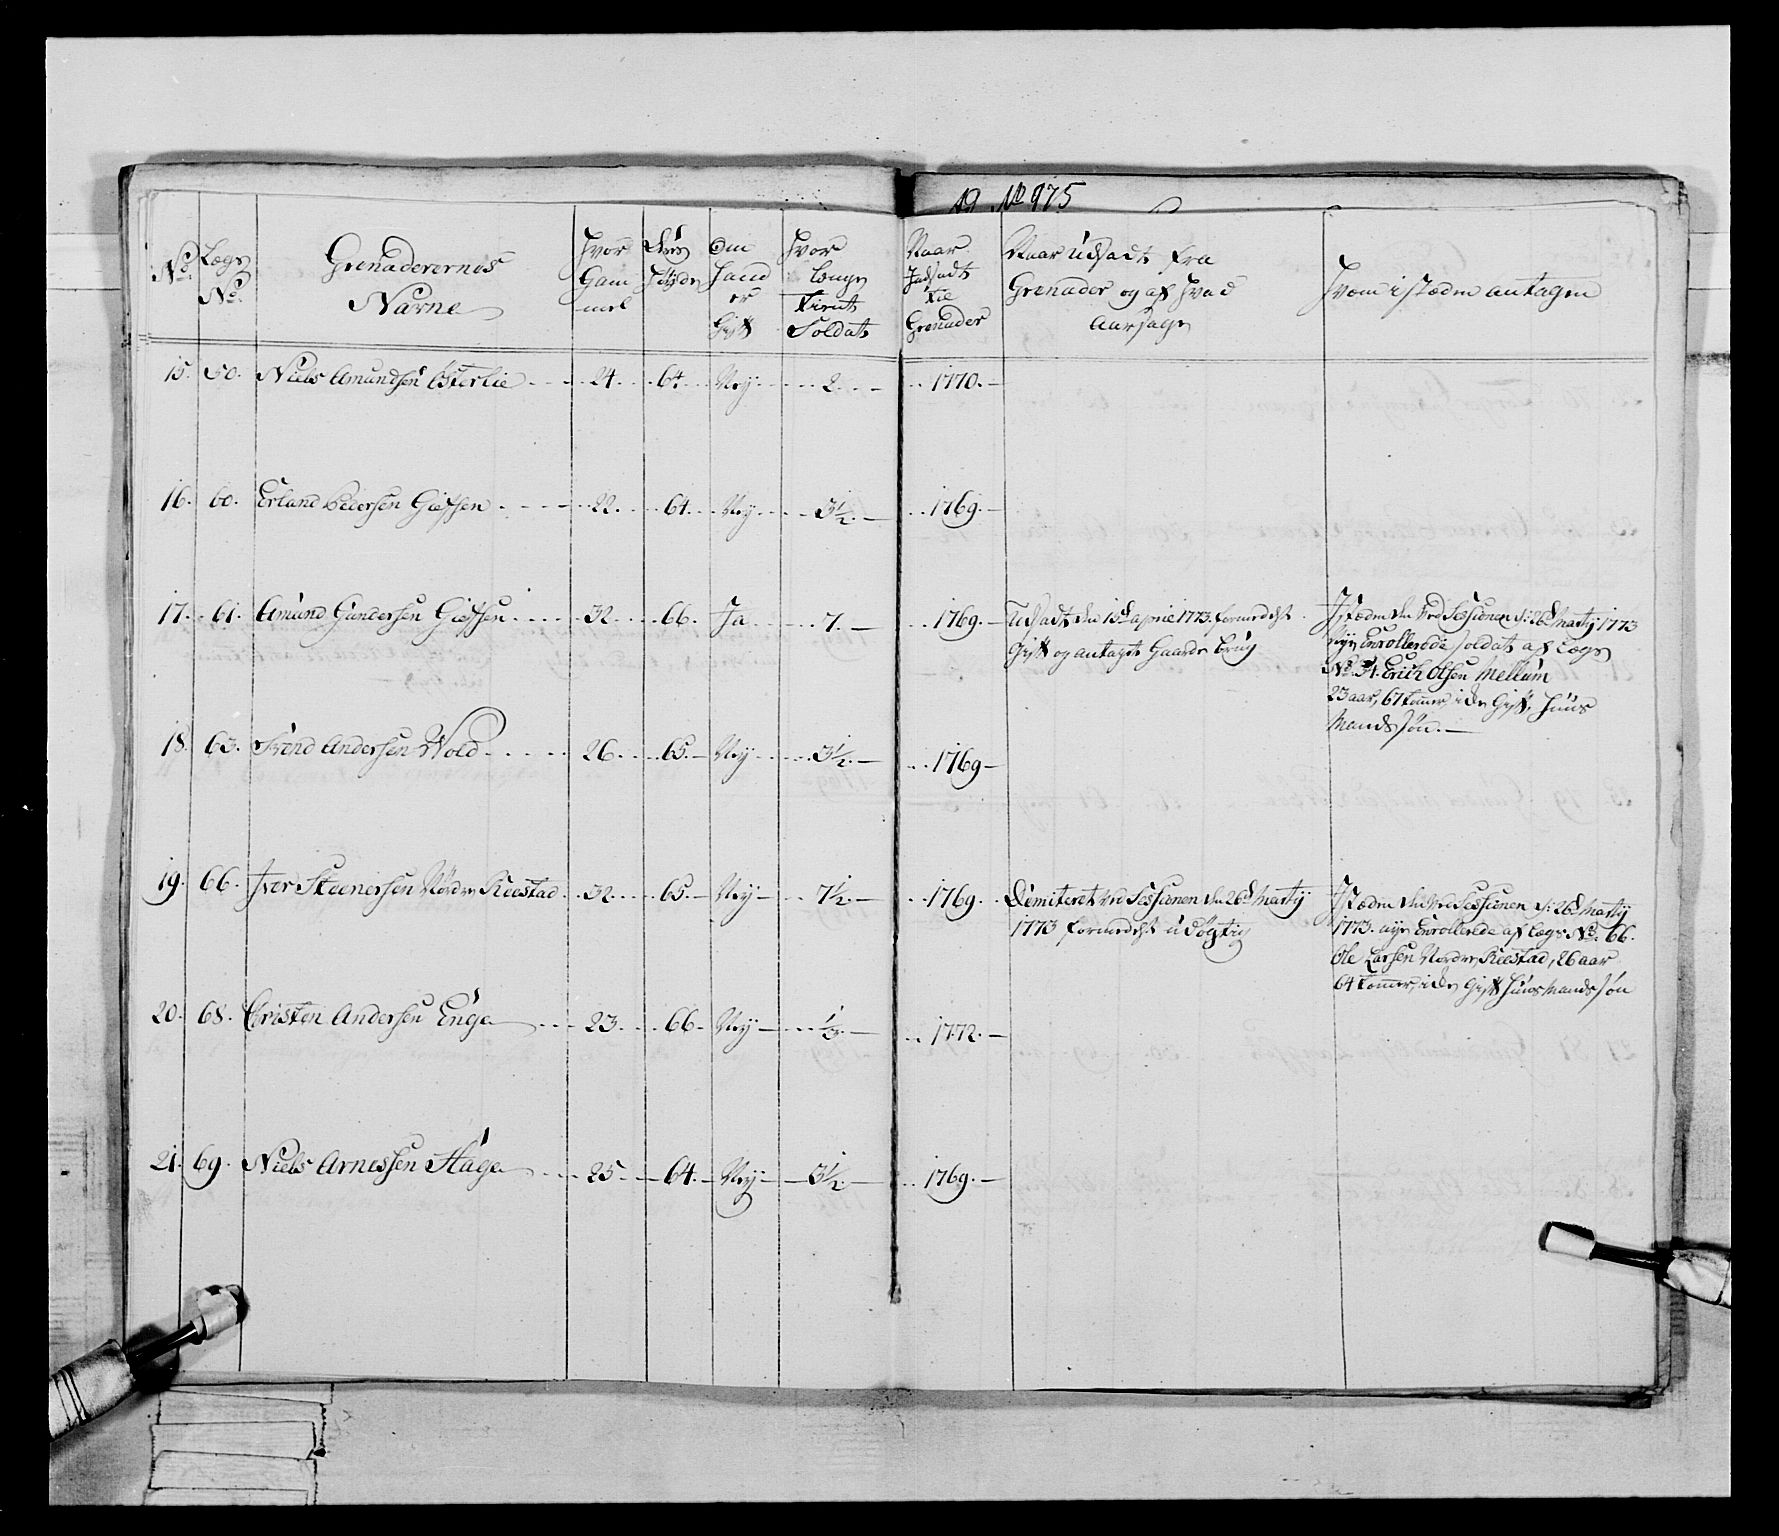 19 No 975
No. Lægs No. Grenaderernes Navne Hvor Gam mel Deres Høyde Om Hand er Gift Hvor længe Tient Soldat Naar Indsadt til Grenader Naar Udsadt fra Grenader og af hvad Aarsage Hvem i stæden antagen
15. 50. Niels Amundsen Østerlie 24. 64. Ney 2. 1770.
16. 60. Erland Pedersen 22. 64. Ney 3½. 1769.
17. 61. Amund Gundersen 32. 66. Ja 7. 1769.
Udsadt den 15d april 1773. formedelst
Gift og antaget Gaarde brug
I stæden den ved Sessionen d: 26d Marty 1773
nye Enrollerede soldat af Lægs
No. 34. Erich Olsen Mellum
23 aar, 67 tommer, icke Gift, Huus
Mands søn.
18. 63. Svend Andersen Wold 26. 65. Ney 3½. 1769
19. 66. Iver Steenersen Nordre Kiestad 32. 65. Ney 7½. 1769.
Dimiteret ved Sessionen den 26d Marty
1773 formedelst udøgtig
I stæden den ved Sessionen d: 26d Marty
1773. nye Enrollerede af Lægs No. 66.
Ole Larsen Nordre Kiestad, 26 aar
64 tommer, icke Gift Huusmands søn
20. 68. Cristen Andersen Enge 23. 66. Ney 1772.
21. 69. Niels Arnessen Hage 25. 64. Ney 3½. 1769.